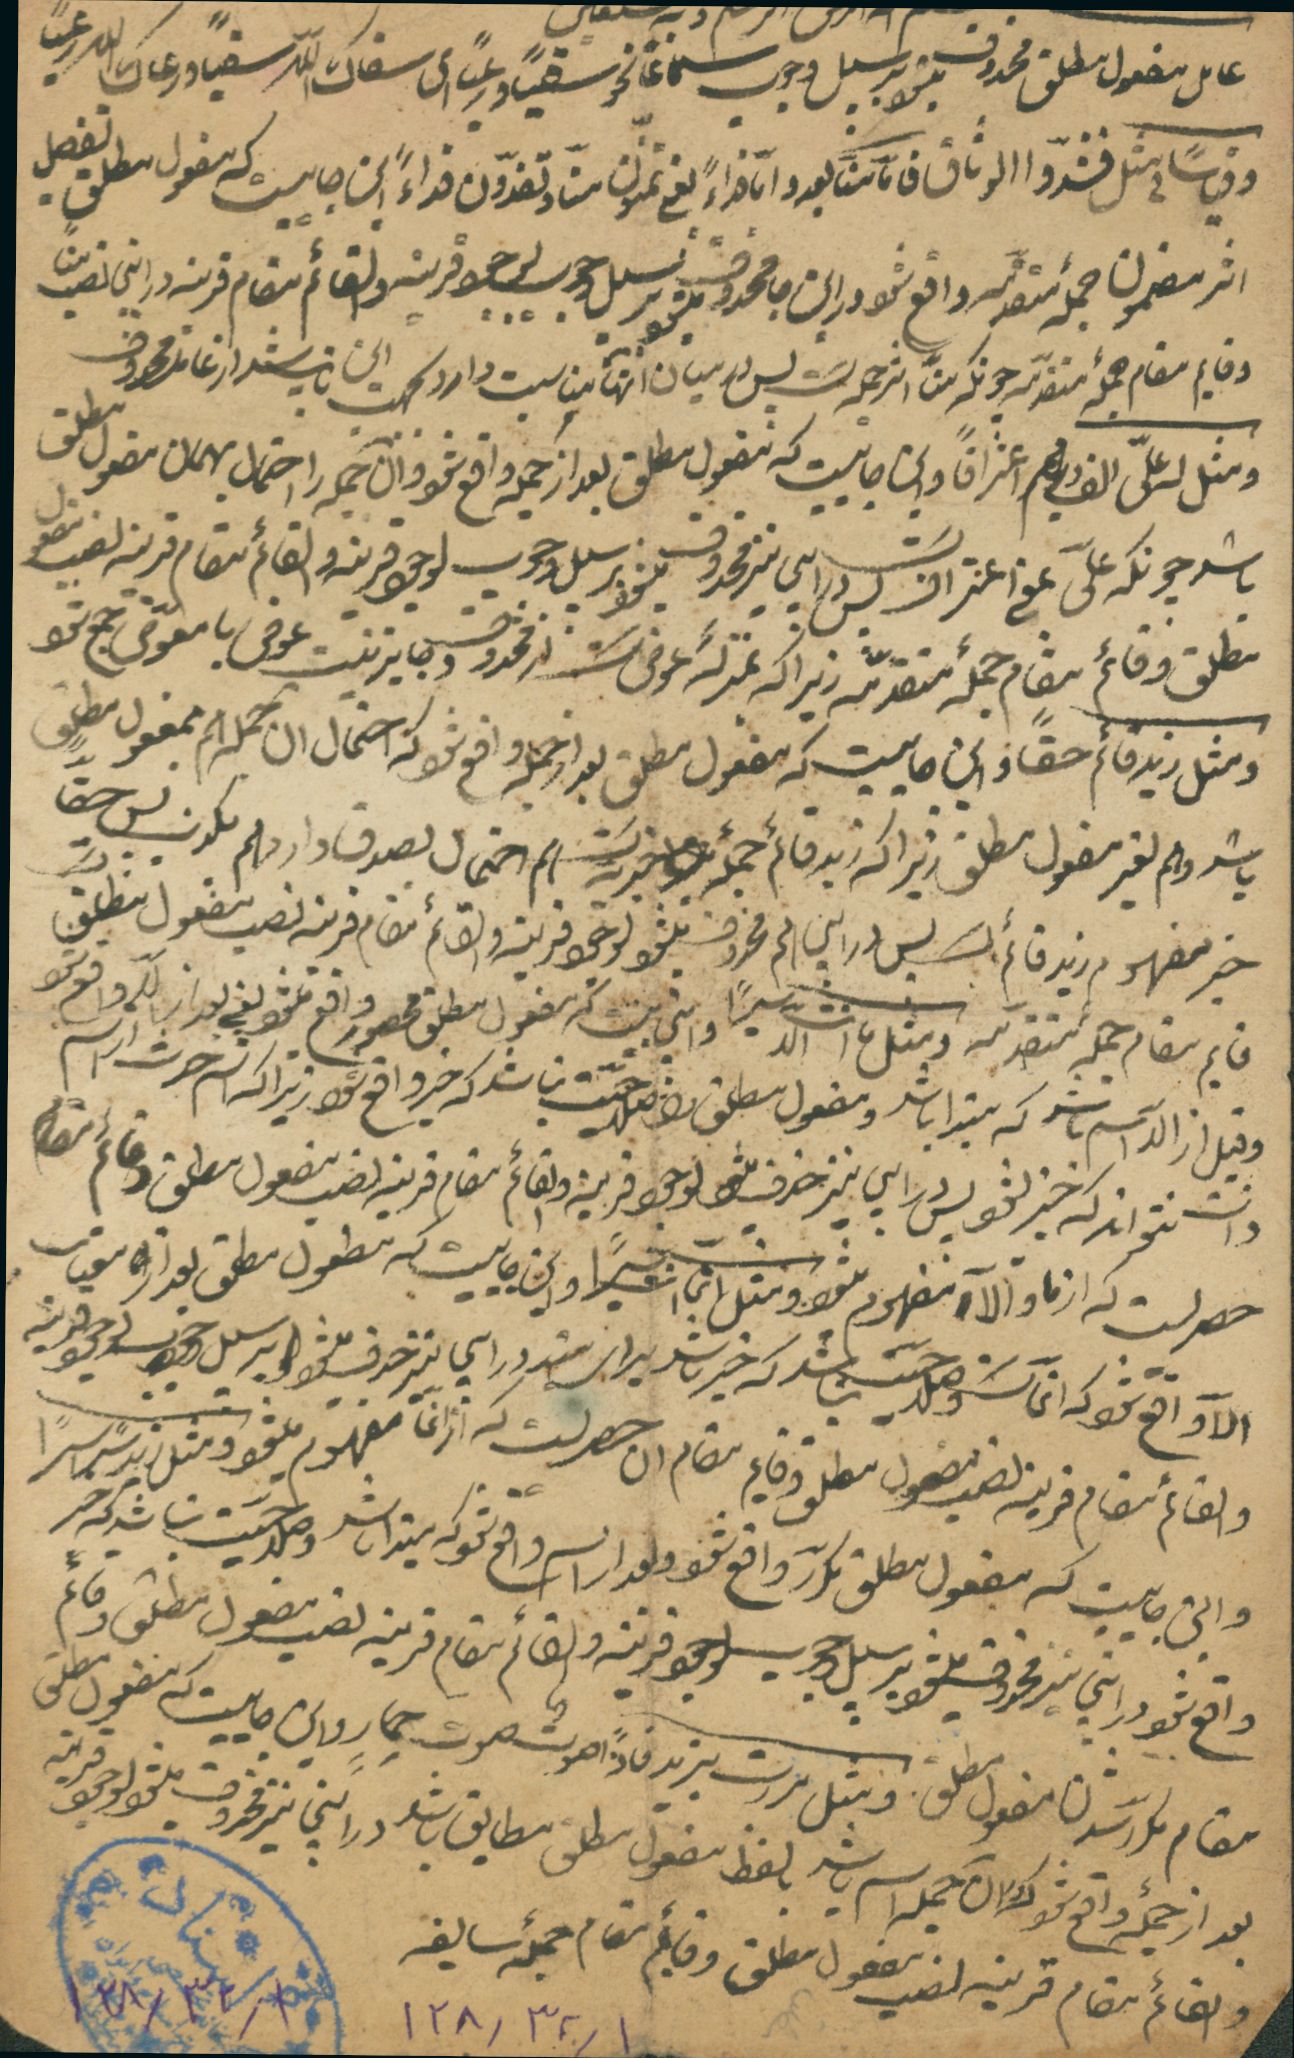 عامل مفعول مطلق محذوف میشود بر سبیل وجوب سماعًا نحو سقیًا و رعیًا ای سقاک الله سقیًا و رعاک الله رعیًا
و قیاسًا فی مثل فشدّوا الوثاق فامّا منًّا بعد و امّا فداءً یعنی تمنّون منّا و تفدّون فداءً این جاییست که مفعول مطلق تفصیل
اثر مضمون جملهٔ متقدمه واقع شود در این جا محذوف میشود بر سبیل وجوب لوجود قرینه و القائم مقام قرینه در اینجا نصب منًّا
و قایم مقام جملهٔ متقدمه چونکه منًّا اثر جمله است پس در میان آنها مناسبت دارد این باشد از عامل محذوف
و مثل له علیّ الف درهم اعترافًا و این جاییست که مفعول مطلق بعد از جمله واقع شود و آن جمله را احتمال بهمان مفعول مطلق
باشد چونکه علیّ یعنی اعتراف است پس در اینجا نیز محذوف میشود بر سبیل وجوب لوجود قرینه و القائم مقام قرینه نصب مفعول
مطلق و قائم مقام جملهٔ متقدمه زیرا که بمنزلهٔ عوض است از محذوف و جایز نیست عوض با معوّض جمع شود
و مثل زید قائم حقًّا و این جاییست که مفعول مطلق بعد از جمله واقع شود که احتمال آن جمله هم بمفعول مطلق
باشد و هم بغیر مفعول مطلق زیرا که زید قائم جملهٔ خبریه است هم احتمال بصدق دارد هم بکذب پس حقًّا
خبر مفهوم زید قائم است پس در اینجا هم محذوف میشود لوجود قرینه و القائم مقام قرینه نصب مفعول مطلق است
قایم مقام جملهٔ متقدمه و مثل ما انت الّا سیرًا و اینجاییست که مفعول مطلق محصور واقع شود یعنی بعد از الّا واقع شود
و قبل از الّا اسم باشد که مبتدا باشد و مفعول مطلق را صلاحیّت نباشد که خبر واقع شود زیرا که اسم حدث از اسم
ذات نتواند که خبر شود پس در اینجا نیز حذف میشود لوجود قرینه و القائم مقام قرینه نصب مفعول مطلق و قائم مقام
حصر است که از ما و الّا مفهوم میشود و مثل انّما انت سیرًا و این جاییست که مفعول مطلق بعد از معنای
الّا واقع شود که انّما است و صلاحیّت نباشد که خبر باشد برای مبتدا در اینجا نیز حذف میشود بر سبیل وجوب لوجود قرینه
و القائم مقام قرینه نصب مفعول مطلق و قایم مقام آن حصر است که از انّما مفهوم میشود و مثل زید سیرًا سیرًا
و این جاییست که مفعول مطلق مکرّر واقع شود و بعد از اسم واقع شود که مبتدا باشد و صلاحیّت نباشد که خبر
واقع شود در اینجا نیز محذوف میشود بر سبیل وجوب لوجود قرینه و القائم مقام قرینه نصب مفعول مطلق و قائم
مقام مکرر شدن مفعول مطلق و مثل مررت بزید فاذا صوت صوت حمار و این جاییست که مفعول مطلق
بعد از جملهٔ واقع شود که آن جمله اسم باشد بلفظ مفعول مطلق مطابق باشد در اینجا نیز محذوف میشود لوجود قرینه
و القائم مقام قرینه نصب مفعول مطلق و قائم مقام جملهٔ سابقه
۱۲۸/۳۲/۱
۱۲۸/۳۲/۱